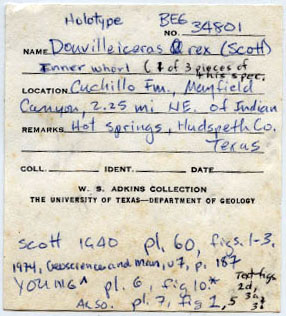 Holotype BEG
NO. 34801
NAME Douvilleiceras Q rex (Scott)
Inner whorl (1 of 3 pieces of this spec.
LOCATION Cuchillo Fm., Mayfield
Canyon, 2.25 mi NE. of Indian
REMARKS Hot Springs, Hudspeth Co.
Texas
COLL. IDENT. DATE
W. S. ADKINS COLLECTION
THE UNIVERSITY OF TEXAS—DEPARTMENT OF GEOLOGY
Scott 1940 pl. 60, figs. 1-3.
1974, Geoscience and Man, v7, p. 187
YOUNG^ pl. 6, fig 10* Text figs
Also. pl. 7, fig 1, 5 2d, 3a, 3?